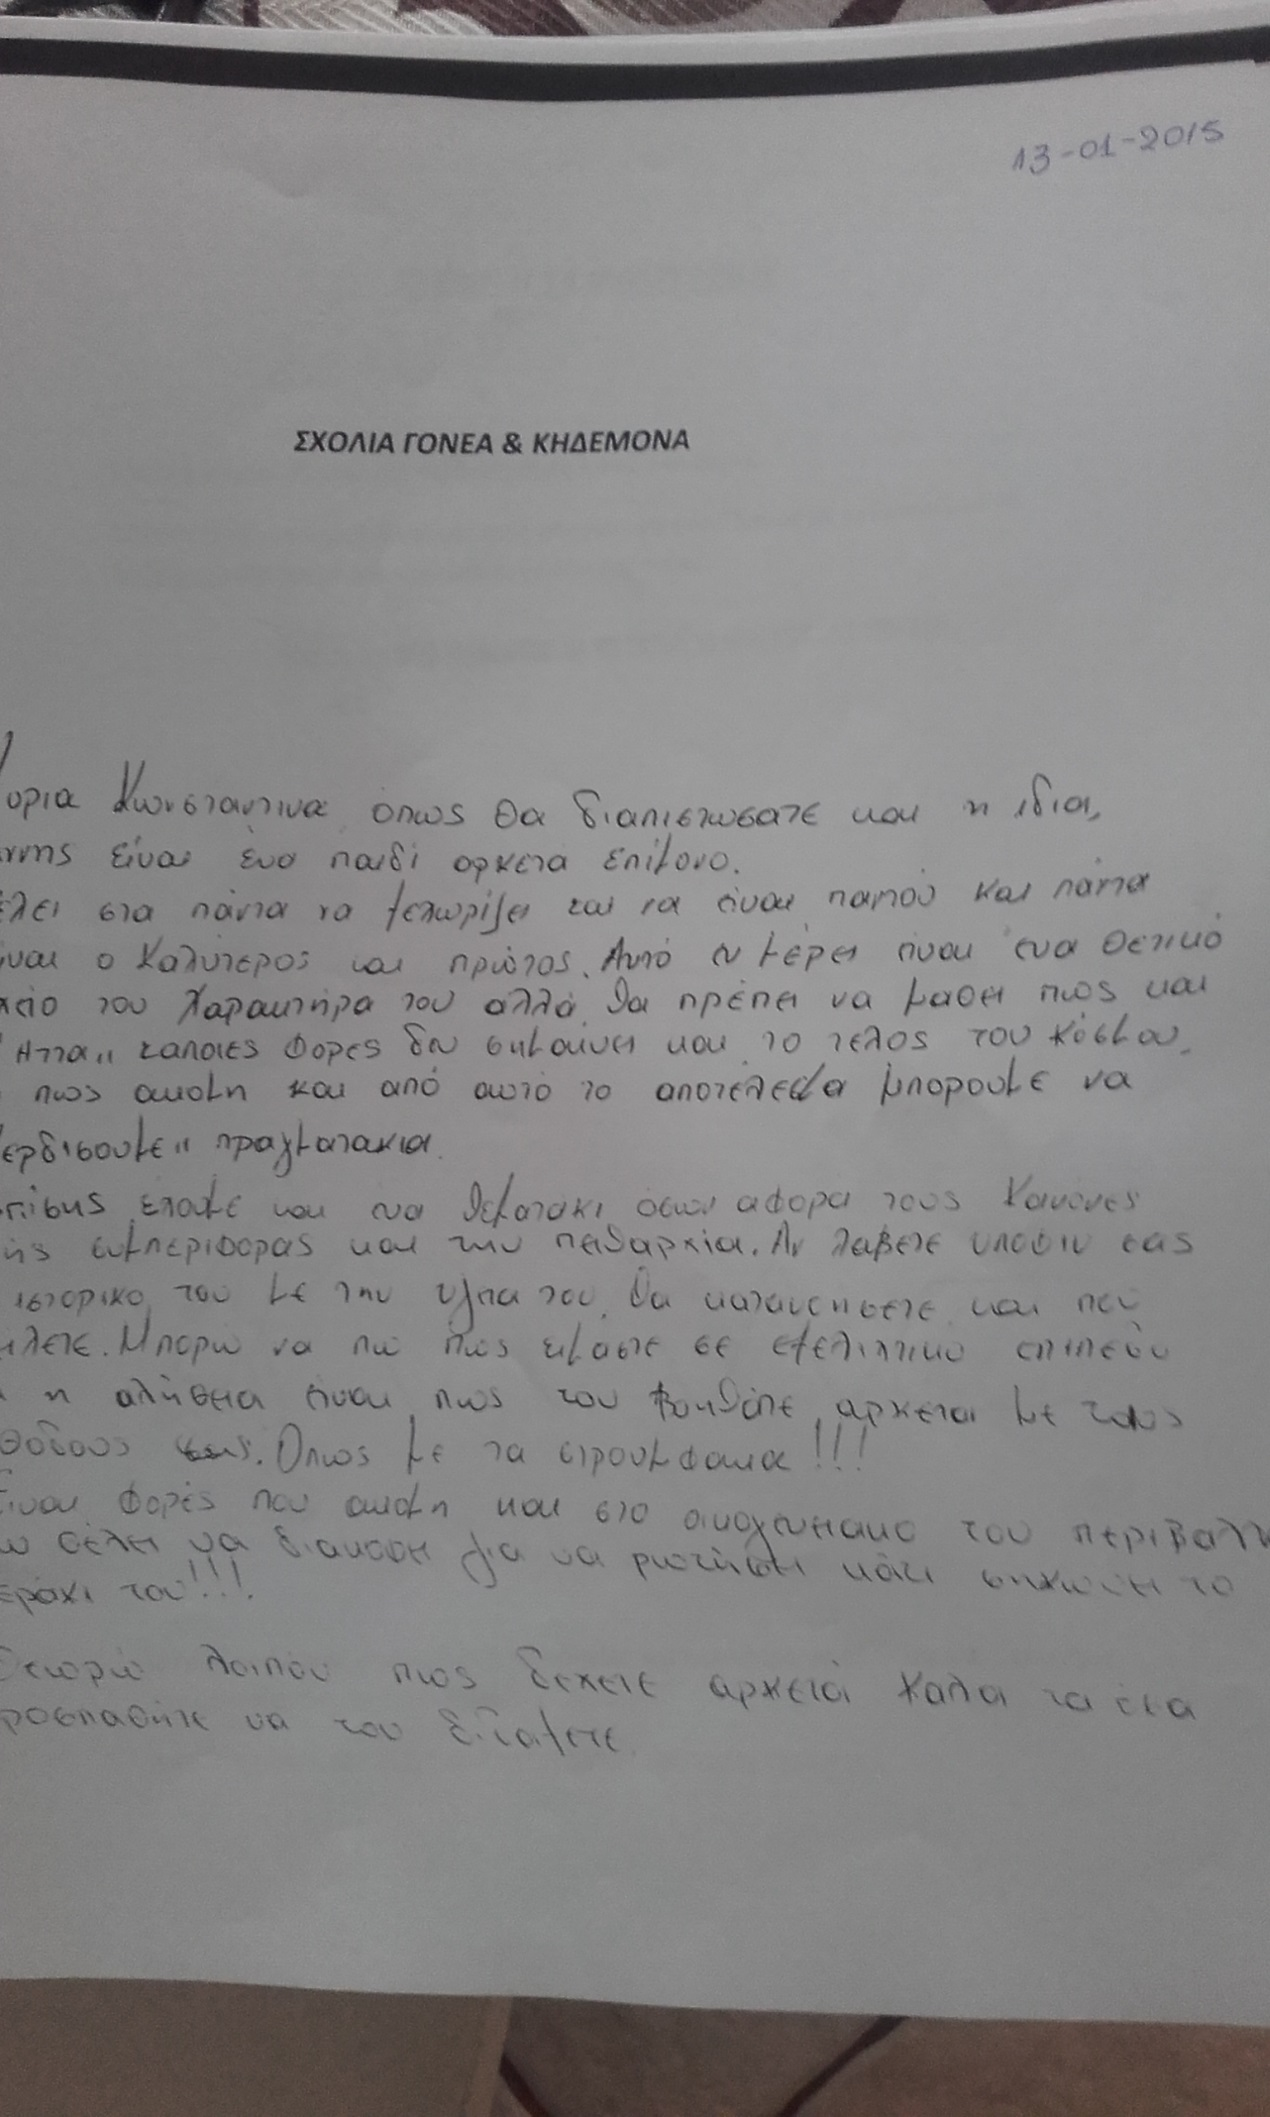 13-01-2015
ΣΧΟΛΙΑ ΓΟΝΕΑ & ΚΗΔΕΜΟΝΑ
υρια Κωνσταντινα όπως θα διαπιστωσατε και η ιδια,
ννης είναι ένα παιδί αρκετα επίμονο.
έλει στα πάντα να ξεχωρίζει και να είναι παντού και πάντα
ίναι ο καλύτερος και πρώτος. Αυτό εν μέρει είναι ένα θετικό
χείο του χαρακτήρα του αλλά θα πρέπει να μαθει πως και
ηττα" καποιες φορες δεν σημαίνει και το τελος του κόσμου,
πως ακομη και από αυτό το αποτέλεσμα μπορουμε να
ερδισουμε" πραγματακια.
πίσης έχουμε και ένα θεματακι όσων αφορα τους κανόνες
ής συμπεριφορας και την πειθαρχία. Αν λαβετε υποψιν σας
ιστορικο του με την υγεια του θα κατανοησετε και που
ιλετε. Μπορω να πω πως είμαστε σε εξελικτικο επιπεδο
η αλήθεια είναι πως του βοηθάτε αρκετα με τους
θόδους σας. Οπως με τα στρουμφακια!!!
Είναι φορές που ακομη και στο οικογενειακο του περιβαλλ
ω θέλει να διακοψει για να ρωτήσει κάτι σηκωνει το
εράκι του!!!
Θεωρώ λοιπόν πως δεχετε αρκετά καλα τα όσα
ροσπαθήτε να του διδαξετε